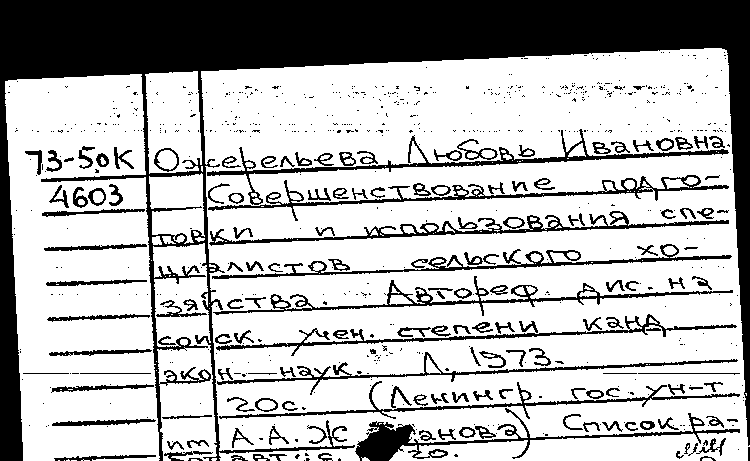 73-5.0К Ожерельева, Любовь Ивановна.
4603 Совершенствование подго-
товки и использования спе-
циалистов сельского хо-
зяйства. Автореф. дис. на
соиск. учен. степени канд.
экон. наук. Л., 1973.
20с. (Ленингр. гос. ун-т
им. А.А. Ж анова). Список ра-
20.